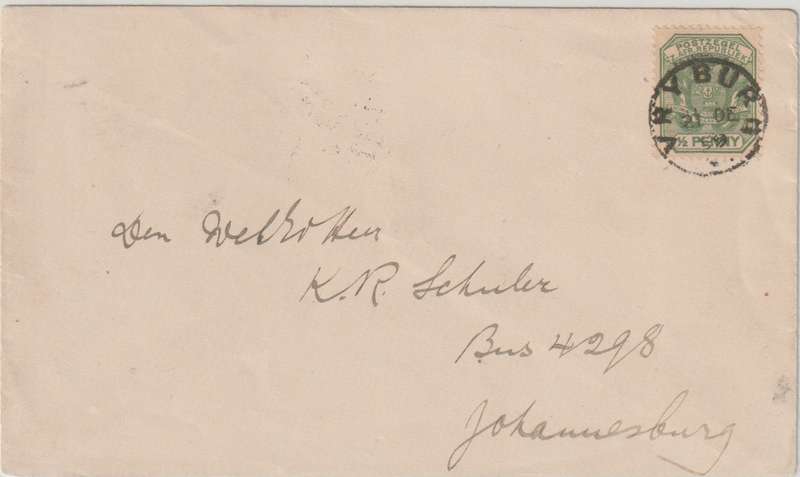 POSTZEGEL
Z. AFR. REPUBLIEK
½ PENNY
VRYBURG
21 DE
99
Den WelEd Heer
K. R. Schuler
Bus 4298
Johannesburg